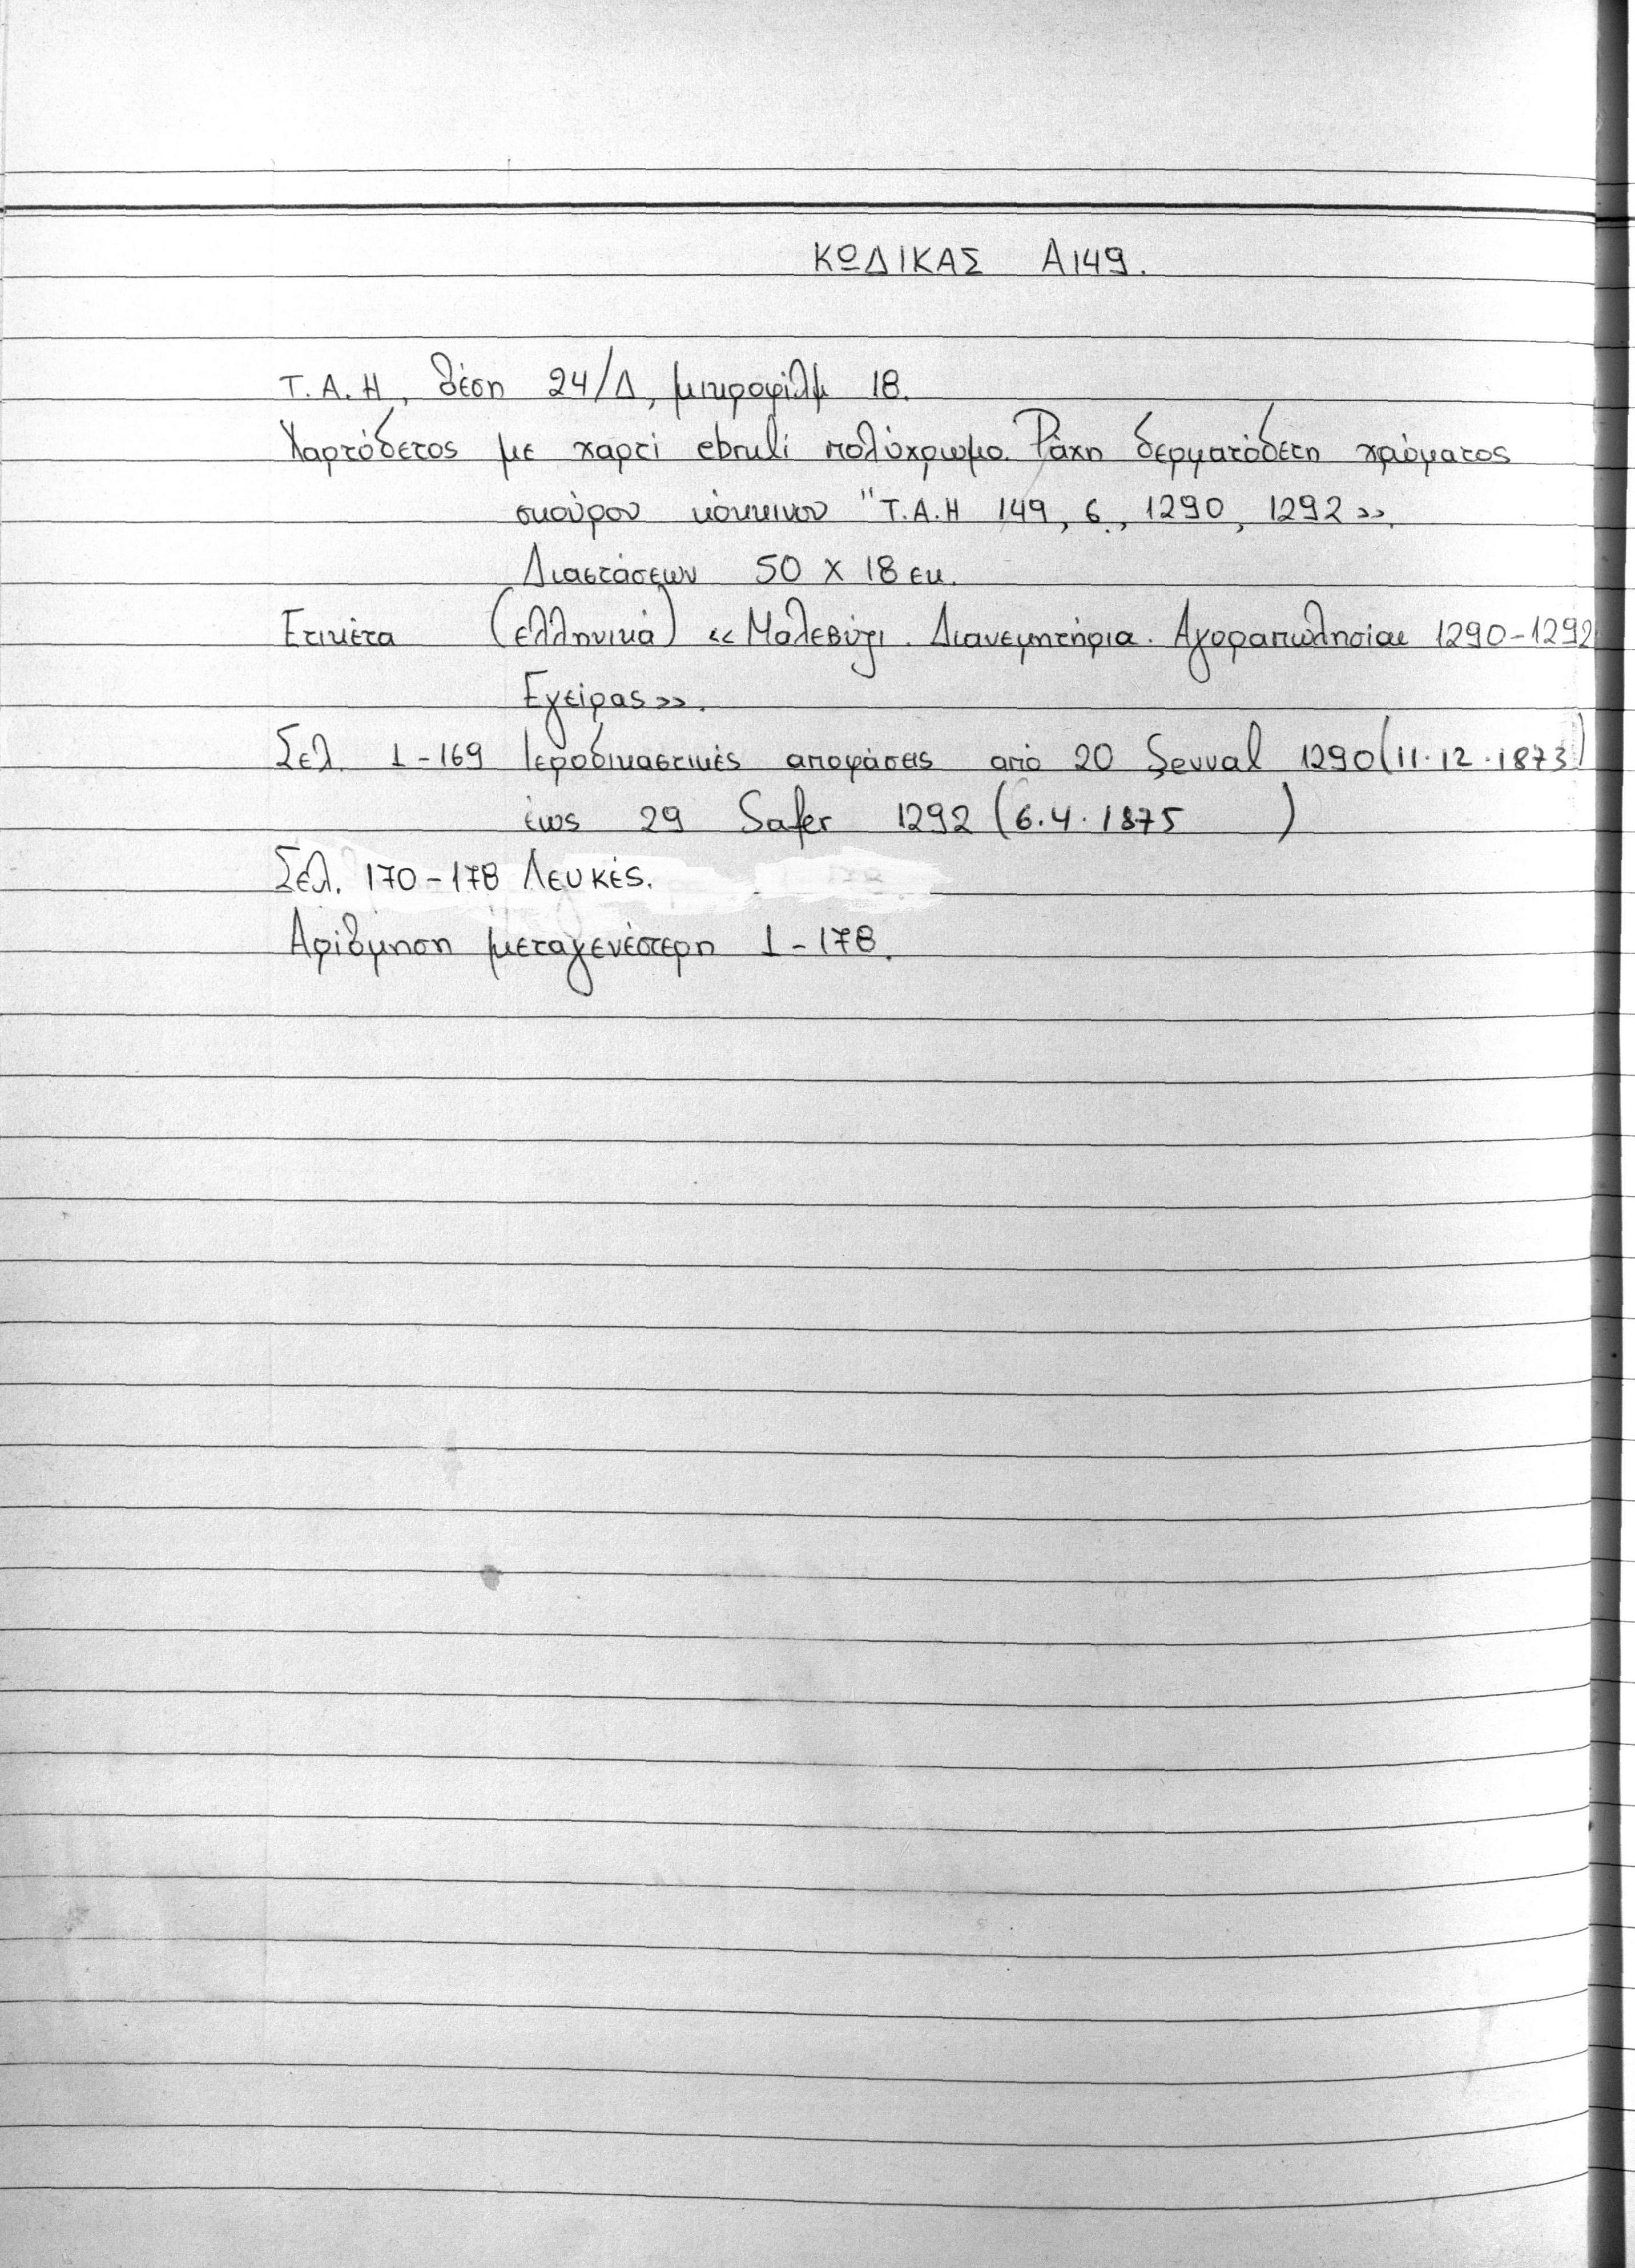 ΚΩΔΙΚΑΣ Α149.
Τ.Α.Η, θέση 24/Δ, μικροφίλμ 18.
Χαρτόδετος με χαρτί ebruli πολύχρωμο. Ράχη δερματόδετη χρώματος
σκούρου κόκκινου "Τ.Α.Η 149, 6, 1290, 1292».
Διαστάσεων 50 x 18 εκ.
Ετικέτα (ελληνικά) «Μαλεβύζι. Διανεμητήρια. Αγοραπωλησίαι 1290-1292
Εγείρας».
Σελ. 1-169 Ιεροδικαστικές αποφάσεις από 20 Şevval 1290 (11.12.1873)
έως 29 Safer 1292 (6.4.1875 )
Σελ. 170-178 Λευκές.
Αρίθμηση μεταγενέστερη 1-178.